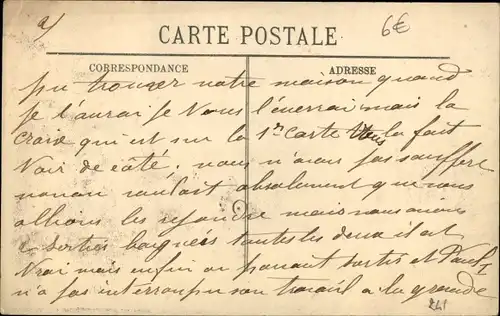 a/
6€
CARTE POSTALE
CORRESPONDANCE
ADRESSE
pu trouver notre maison quand
je l'aurai je vous l'enverrai mais la
croix qui est sur la 1re carte vous la fait
voir de côté. nous n'avons pas souffert
voulait absolument que nous
allions les rejoindre mais nous avions
sorties baignées toutes les deux il est
vrai mais enfin on pouvait sortir et Paul
n'a pas interrompu son travail a la grande
241